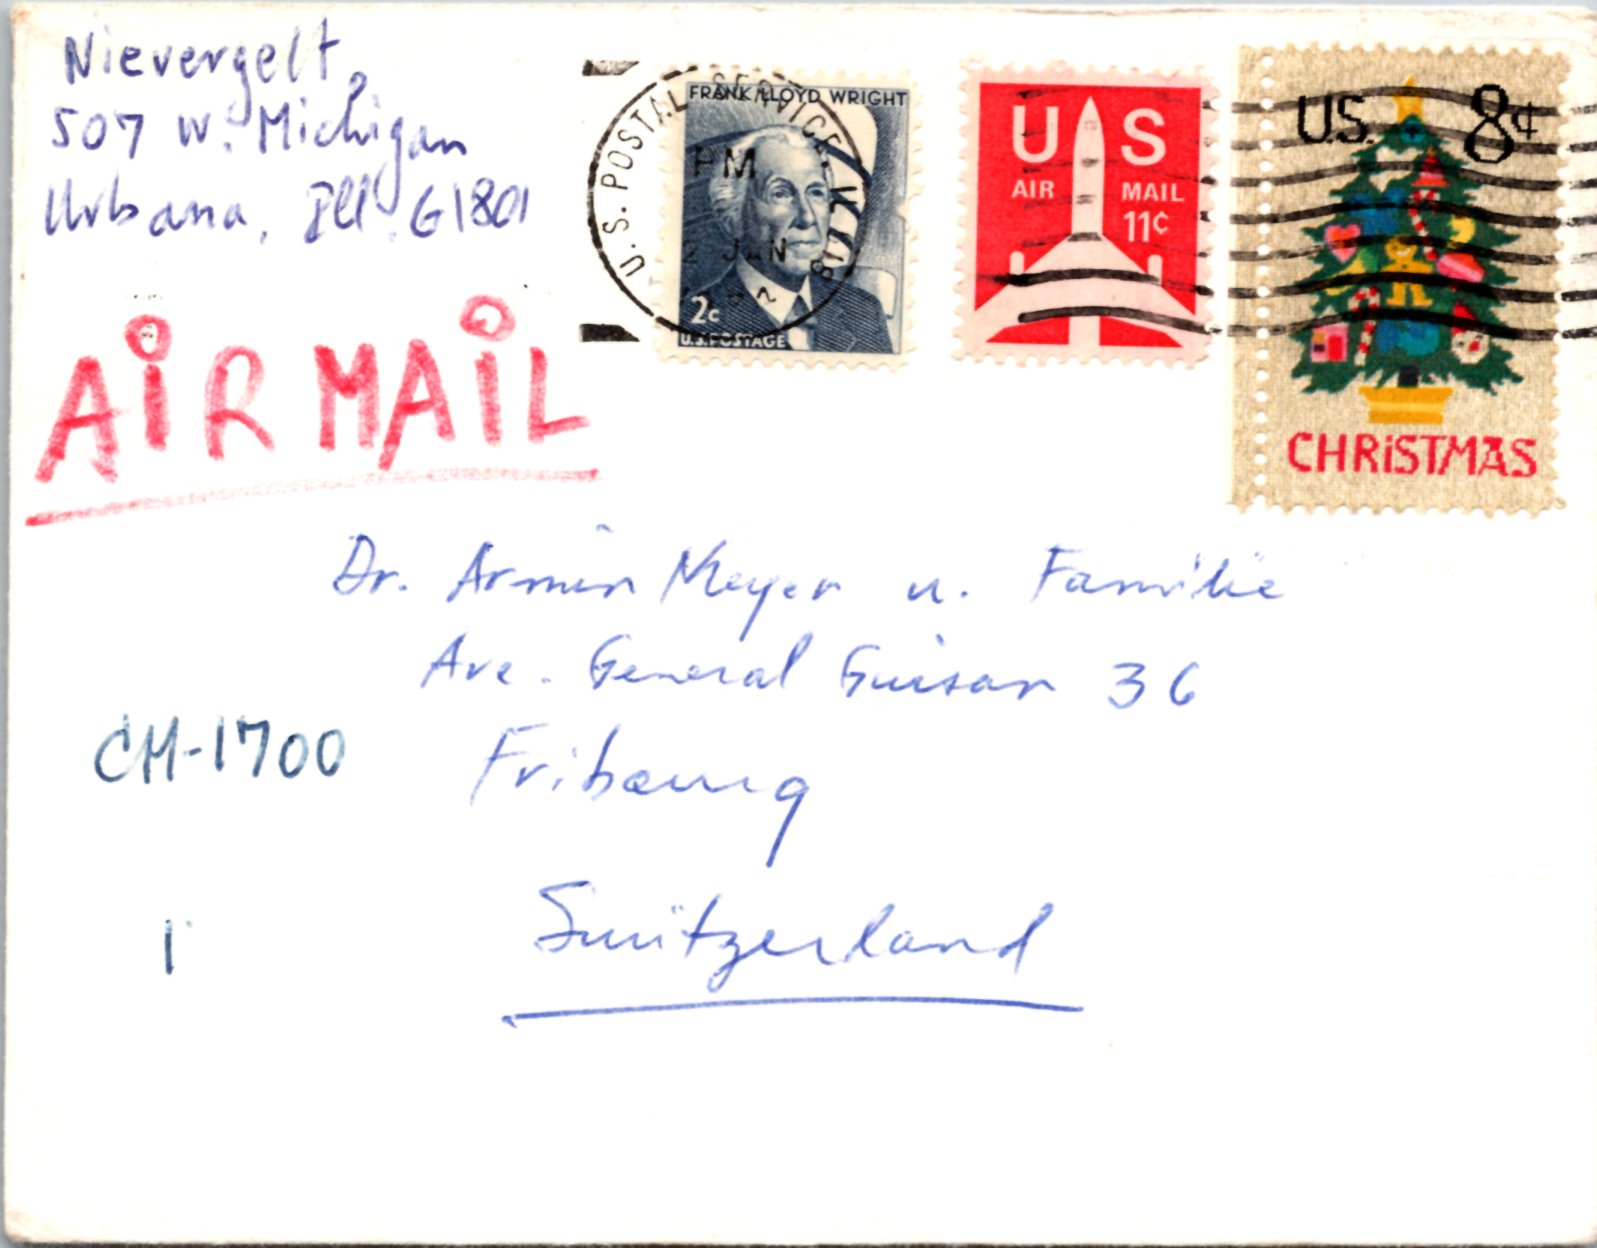 Nievergelt
507 W. Michigan
Urbana, Ill. 61801
AIRMAIL
U.S. POSTAL SERVICE
PM
2 JAN
FRANK LLOYD WRIGHT
2c
U.S. POSTAGE
US
AIR MAIL
11¢
U.S. 8¢
CHRISTMAS
Dr. Armin Meyer u. Familie
Ave. General Guisan 36
CH-1700 Fribourg
Switzerland
1